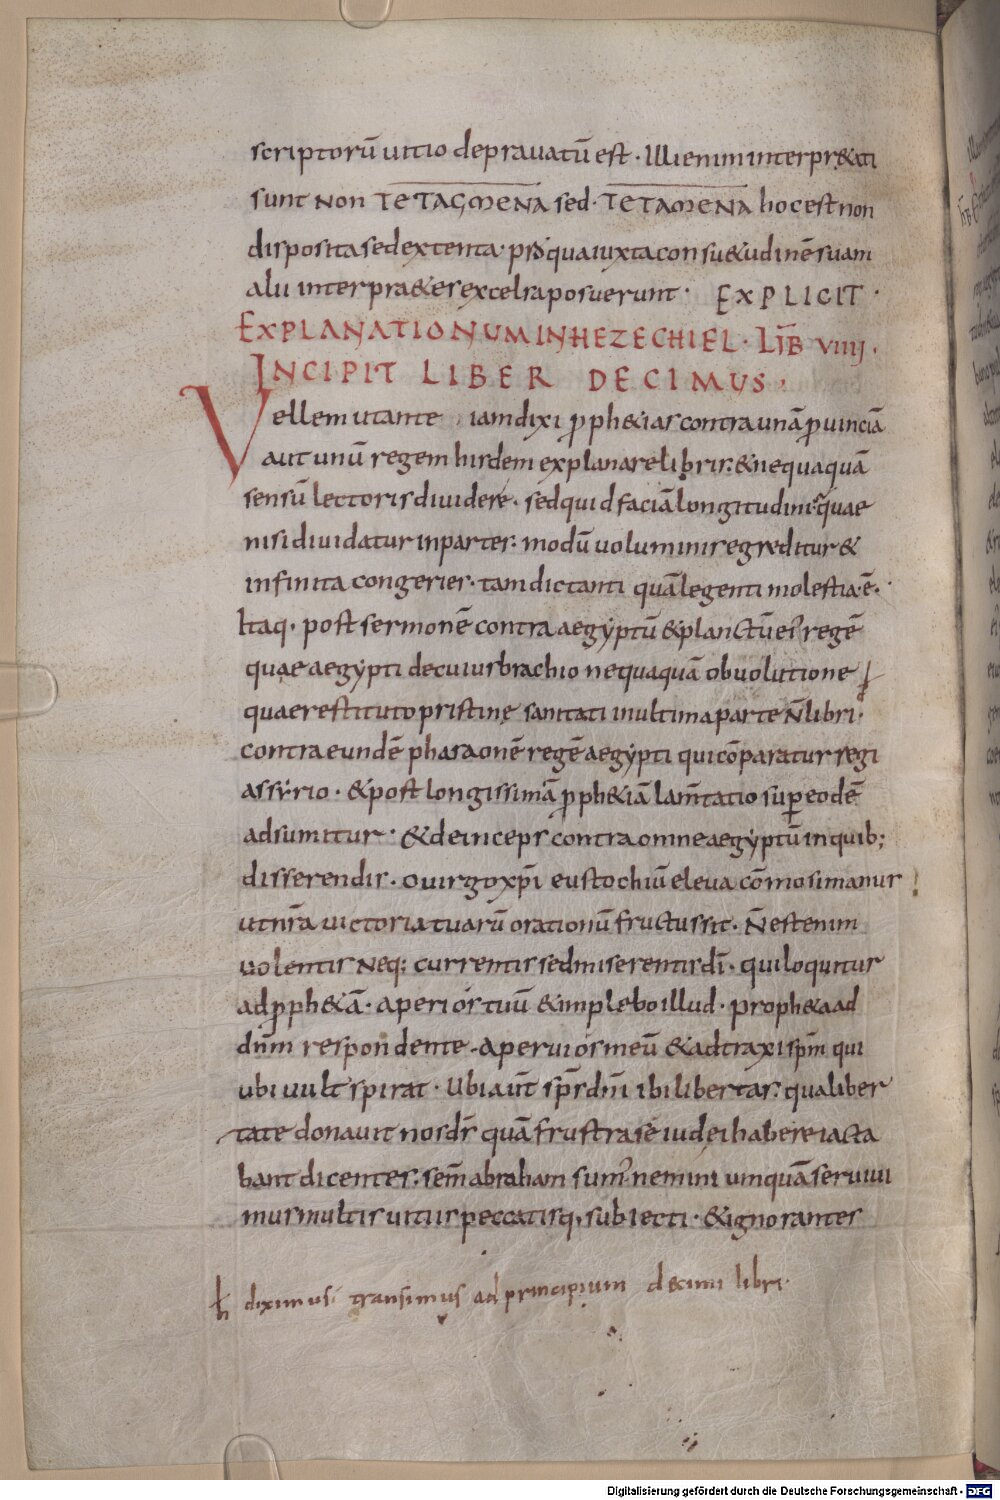 scriptorū uitio deprauatū est · Illi enim interpr&ati
sunt non TETAGMENA sed · TETAMENA hoc est non
disposita sed extenta · pro qua iuxta consu&udinē suam
alii interpr&es excelsa posuerunt · EXPLICIT ·
EXPLANATIONUM IN HEZECHIEL · LIB̄ VIIII ·
INCIPIT LIBER DECIMUS ·
Vellem ut ante iam dixi pph&ias contra unā puinciā
aut unū regem hisdem explanare libris · & nequaquā
sensū lectoris diuidere · sed quid faciā longitudini · quae
nisi diuidatur in partes · modū uoluminis egreditur &
infinita congeries · tam dictanti quā legenti molestia · ē ·
Itaq · post sermonē contra aegyptū & planctū ei' regē
quae aegypti de cuius brachio nequaquā obuolutione
quae restituto pristinę sanitati in ultima parte N̄ libri ·
contra eundē pharaonē regē aegypti qui cōparatur regi
assyrio · & post longissimā pph&iā lam̄tatio sup eodē
adsumitur · & deinceps contra omne aegyptū in quib;
disserendis · o uirgo xp̄i eustochiū eleua cō mosi manus
ut nr̄a uictoria tuarū orationū fructus sit · N̄ est enim
uolentis neq; currentis sed miserentis dī · qui loquitur
ad pph&ā · aperi ós tuū & implebo illud · proph&a ad
dn̄m respondente · aperui ós meū & adtraxi sp̄m qui
ubi uult spirat · Ubi aut̄ sp̄s dn̄i ibi libertas · qua liber
tate donauit nos dr̄ quā frustra sē iudei habere iacta
bant dicentes · sem̄ abraham sum' nemini umquā seruiui
mus multis uitiis peccatisq, subiecti · & ignorantes
h̄ diximus · transimus ad principium decimi libri ·
Digitalisierung gefördert durch die Deutsche Forschungsgemeinschaft - DFG